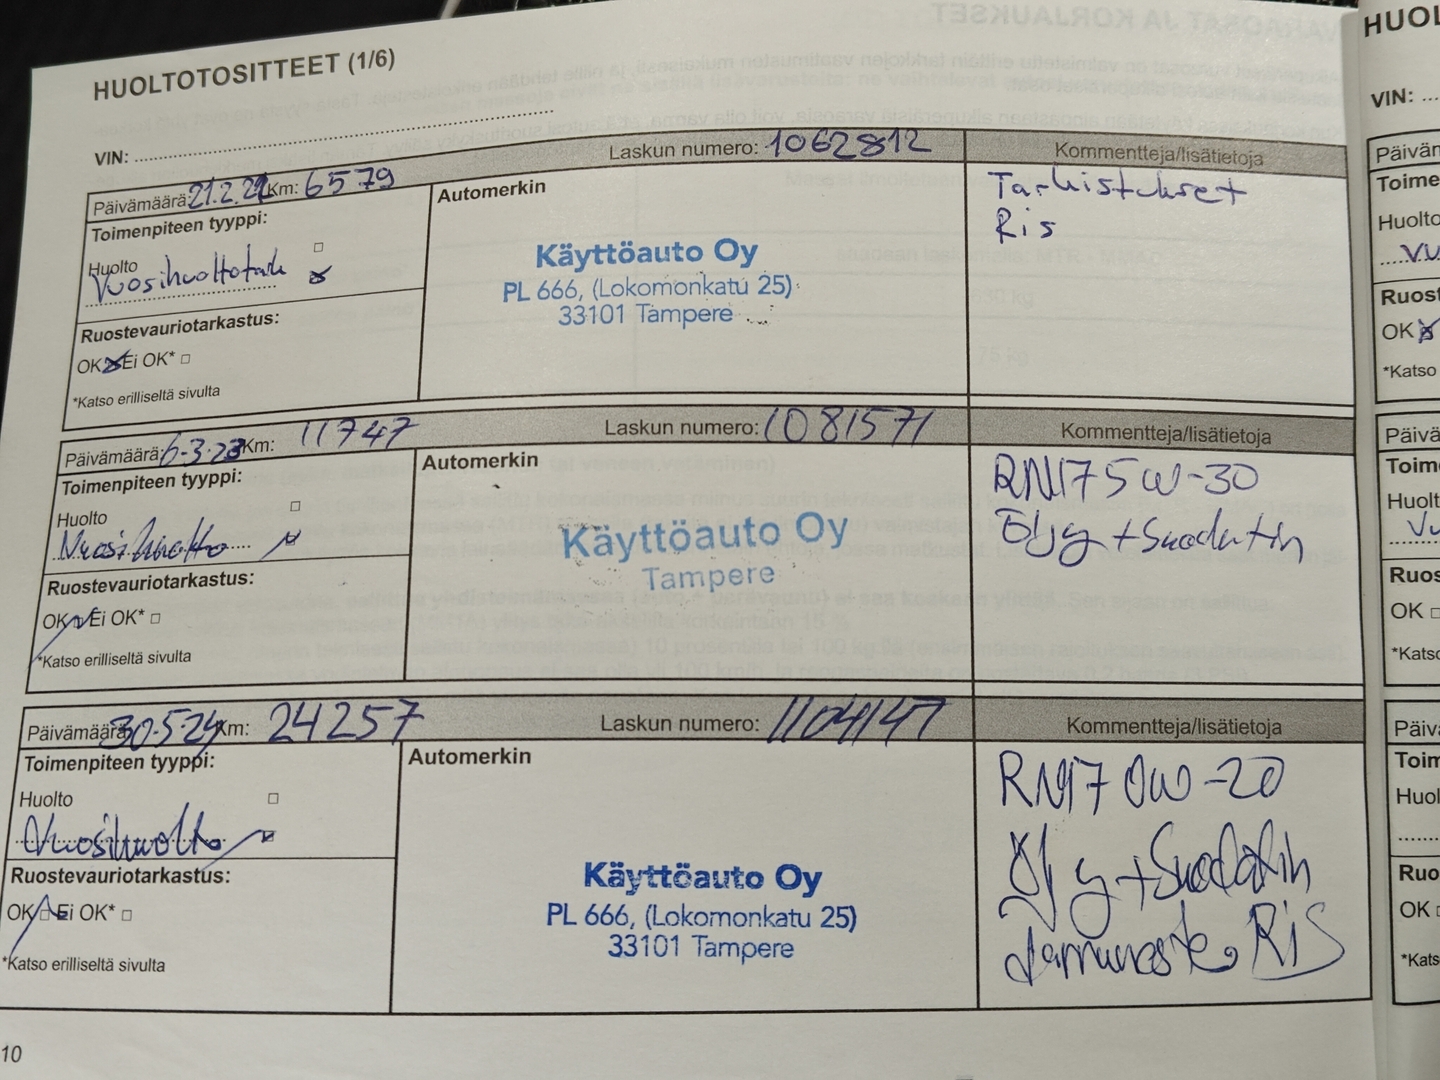 HUOLTOTOSITTEET (1/6)
VIN:
Päivämäärä: 21.2.22 Km: 6579 Laskun numero: 1062812 Kommentteja/lisätietoja
Toimenpiteen tyyppi:
Huolto
Vuosihuoltotark
Ruostevauriotarkastus:
OK Ei OK*
*Katso erilliseltä sivulta
Automerkin
Käyttöauto Oy
PL 666, (Lokomonkatu 25)
33101 Tampere
Tarkistukset
Ris
Päivämäärä: 6-3-23 Km: 11747 Laskun numero: 1081571 Kommentteja/lisätietoja
Toimenpiteen tyyppi:
Huolto
Vuosihuolto
Ruostevauriotarkastus:
OK Ei OK*
*Katso erilliseltä sivulta
Automerkin
Käyttöauto Oy
Tampere
RN17 5W-30
Öljy + Suodatin
Päivämäärä: 30-5-24 Km: 24257 Laskun numero: 1104147 Kommentteja/lisätietoja
Toimenpiteen tyyppi:
Huolto
Vuosihuolto
Ruostevauriotarkastus:
OK Ei OK*
*Katso erilliseltä sivulta
Automerkin
Käyttöauto Oy
PL 666, (Lokomonkatu 25)
33101 Tampere
RN17 0W-20
Öljy + Suodatin
Jarruneste, RiS
10
HUOL
VIN: ...
Päivän
Toime
Huolto
Vu
Ruost
OK
*Katso
Päivä
Toim
Huolt
Vu
Ruos
OK
*Katso
Päivä
Toim
Huol
Ruo
OK
*Kats